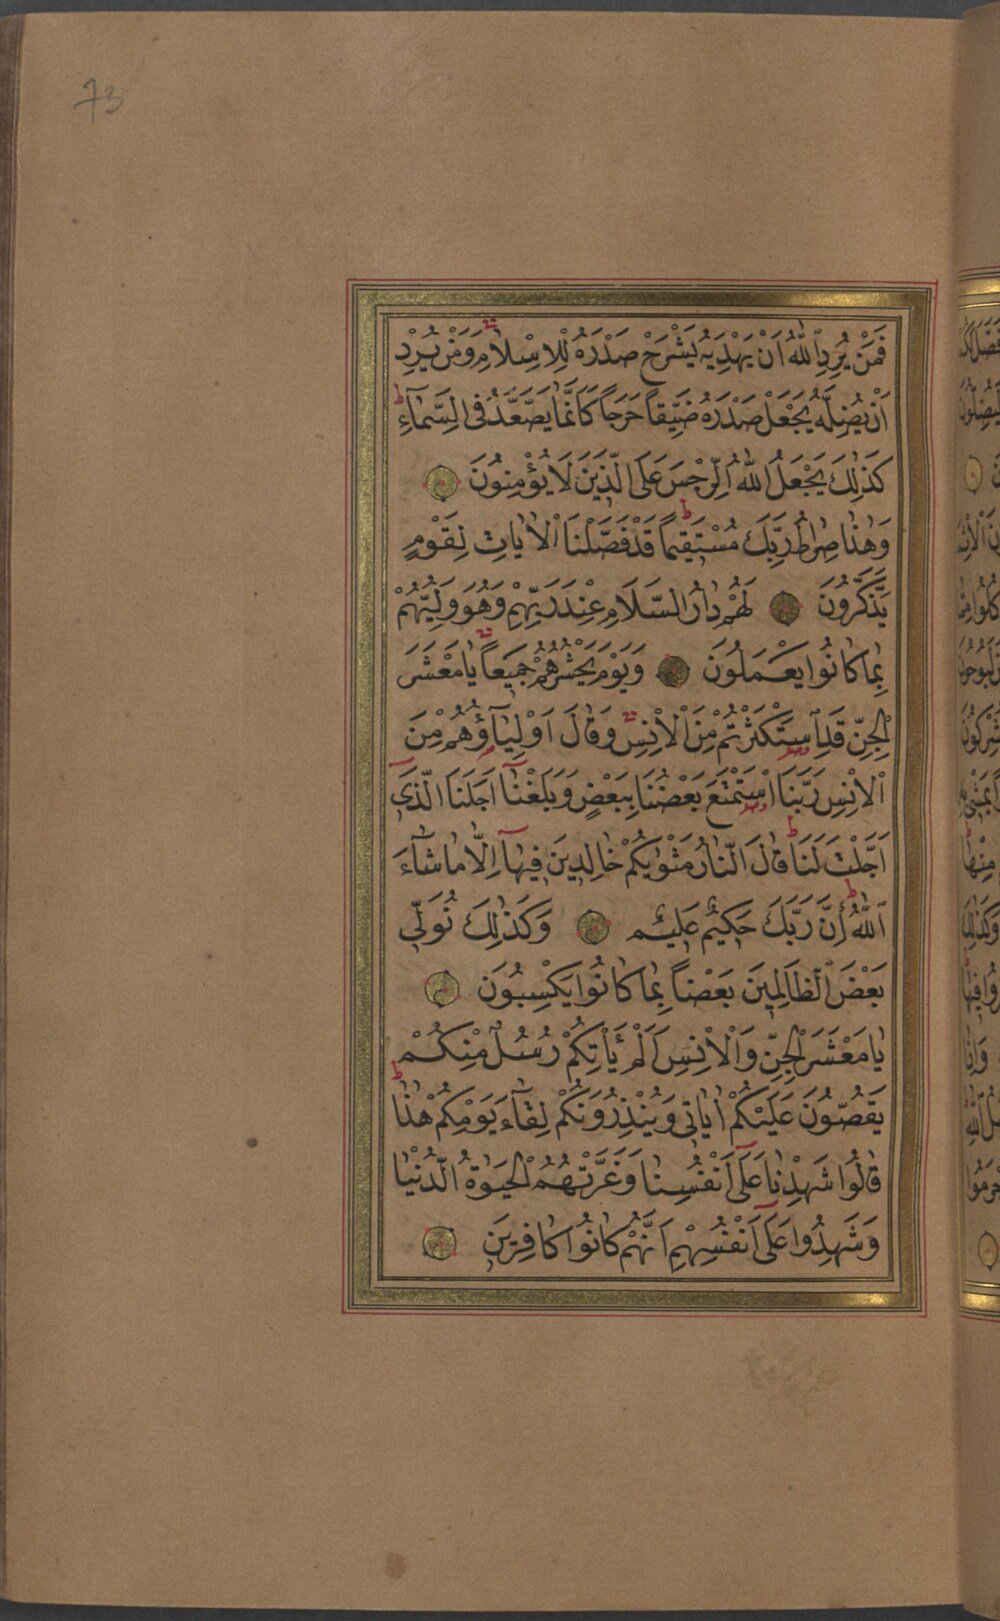 73
فَمَنْ يُرِدِ اللّٰهُ اَنْ يَهْدِيَهُ يَشْرَحْ صَدْرَهُ لِلْاِسْلَامِ وَمَنْ يُرِدْ
اَنْ يُضِلَّهُ يَجْعَلْ صَدْرَهُ ضَيِّقاً حَرَجاً كَاَنَّمَا يَصَّعَّدُ فِى السَّمَآءِ ط
كَذٰلِكَ يَجْعَلُ اللّٰهُ الرِّجْسَ عَلَى الَّذِينَ لَا يُؤْمِنُونَ
وَهٰذَا صِرَاطُ رَبِّكَ مُسْتَقِيماً ط قَدْ فَصَّلْنَا الْاٰيَاتِ لِقَوْمٍ
يَذَّكَّرُونَ لَهُمْ دَارُ السَّلَامِ عِنْدَ رَبِّهِمْ وَهُوَ وَلِيُّهُمْ
بِمَا كَانُوا يَعْمَلُونَ وَيَوْمَ يَحْشُرُهُمْ جَمِيعاً يَا مَعْشَرَ
الْجِنِّ قَدِ اسْتَكْثَرْتُمْ مِنَ الْاِنْسِ وَقَالَ اَوْلِيَآؤُهُمْ مِنَ
الْاِنْسِ رَبَّنَا اسْتَمْتَعَ بَعْضُنَا بِبَعْضٍ وَبَلَغْنَآ اَجَلَنَا الَّذِى
اَجَّلْتَ لَنَا ط قَالَ النَّارُ مَثْوٰيكُمْ خَالِدِينَ فِيهَآ اِلَّا مَا شَآءَ
اللّٰهُ ط اِنَّ رَبَّكَ حَكِيمٌ عَلِيمٌ وَكَذٰلِكَ نُوَلِّى
بَعْضَ الظَّالِمِينَ بَعْضاً بِمَا كَانُوا يَكْسِبُونَ
يَا مَعْشَرَ الْجِنِّ وَالْاِنْسِ اَلَمْ يَاْتِكُمْ رُسُلٌ مِنْكُمْ
يَقُصُّونَ عَلَيْكُمْ اٰيَاتِى وَيُنْذِرُونَكُمْ لِقَآءَ يَوْمِكُمْ هٰذَا ط
قَالُوا شَهِدْنَا عَلٰٓى اَنْفُسِنَا وَغَرَّتْهُمُ الْحَيٰوةُ الدُّنْيَا
وَشَهِدُوا عَلٰٓى اَنْفُسِهِمْ اَنَّهُمْ كَانُوا كَافِرِينَ